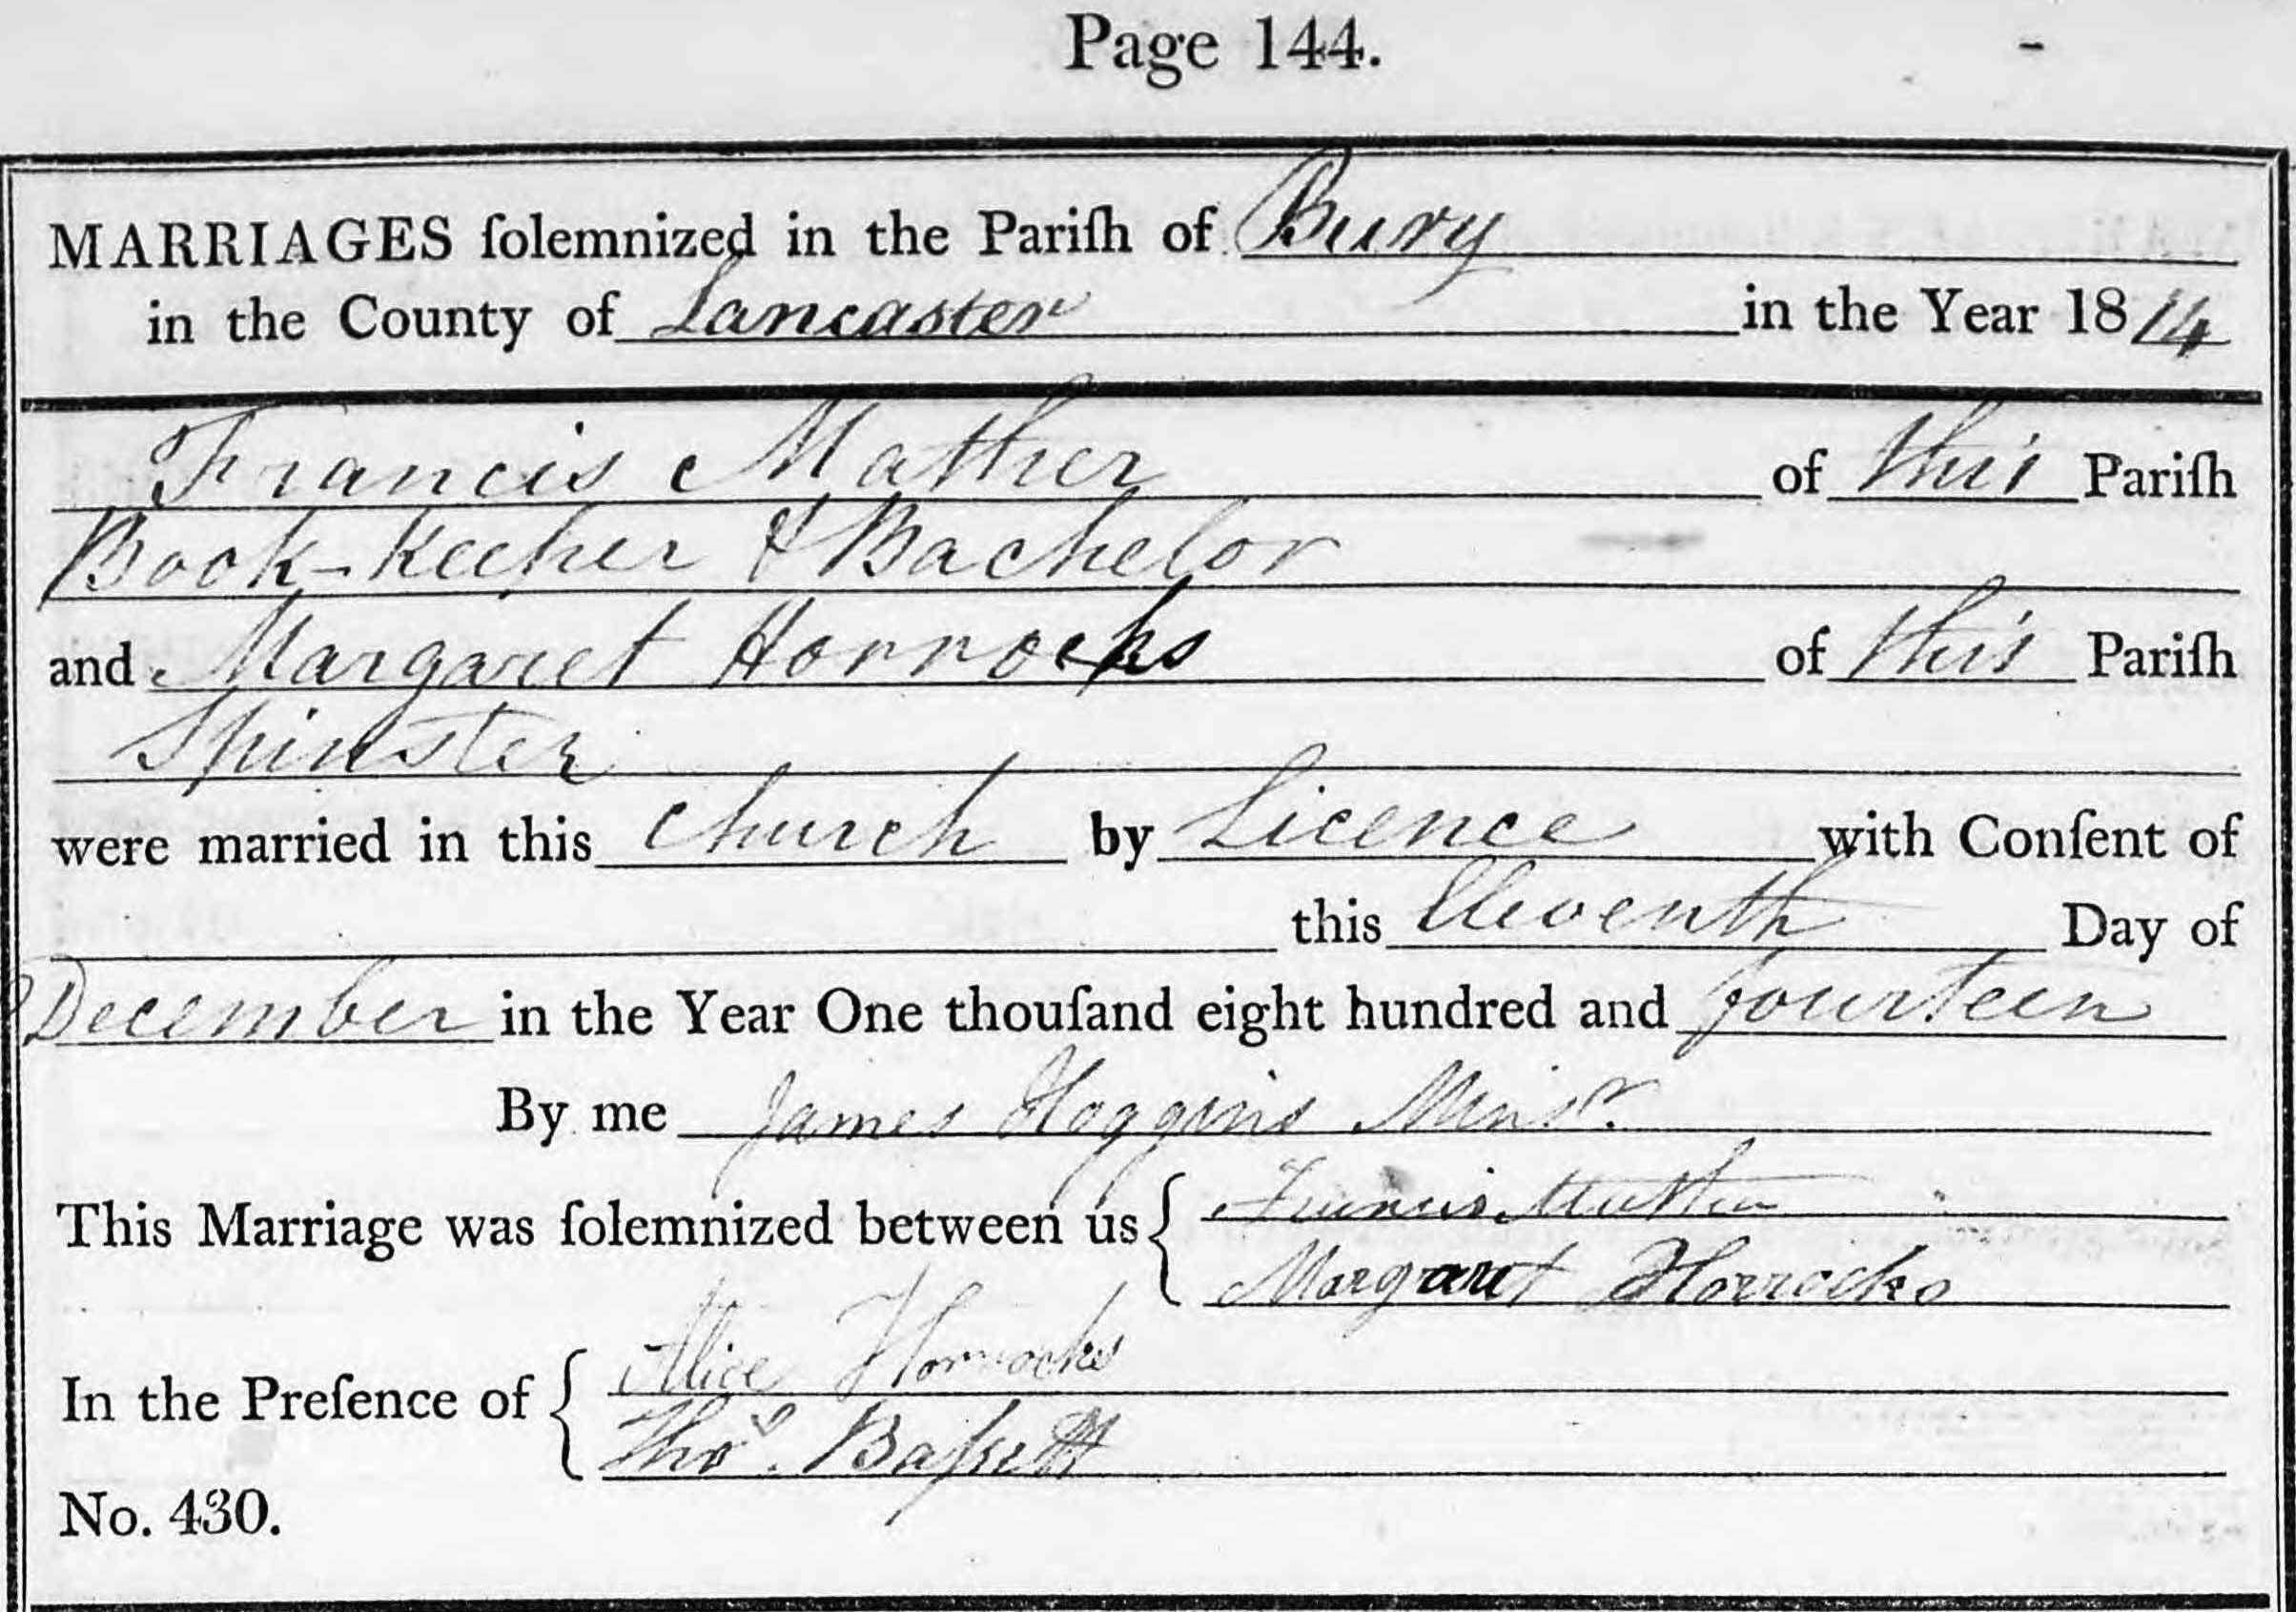 Page 144.
MARRIAGES ſolemnized in the Pariſh of Bury
in the County of Lancaster in the Year 1814
Francis Mather of this Pariſh
Book-Keeper & Bachelor
and Margaret Horrocks of this Pariſh
Spinster
were married in this Church by Licence with Conſent of
this Eleventh Day of
December in the Year One thouſand eight hundred and fourteen
By me James Hoggins Minsr.
This Marriage was ſolemnized between us { Francis Mather
Margaret Horrocks
In the Preſence of { Alice Horrocks
Thos. Baſsett
No. 430.